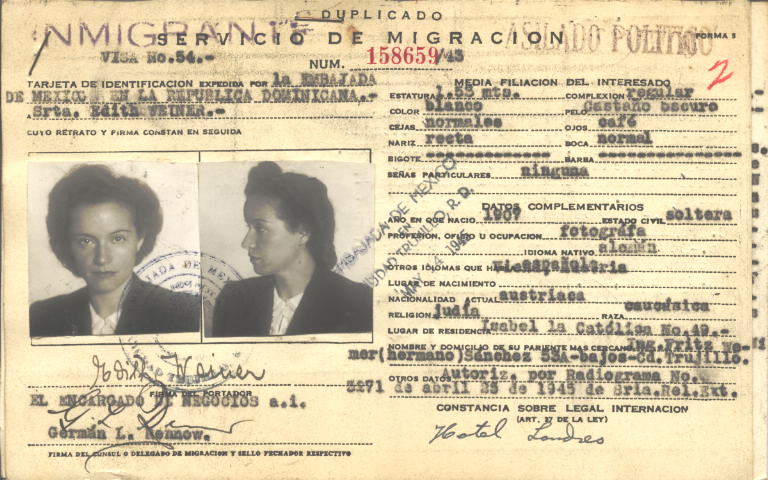 DUPLICADO
INMIGRANTE
SERVICIO DE MIGRACION
ASILADO POLITICO
FORMA 5
VISA No.54.-
NUM. 158659/43
2
TARJETA DE IDENTIFICACION EXPEDIDA POR la EMBAJADA
DE MEXICO EN LA REPUBLICA DOMINICANA.-
A Srta. Edith WEINER.-
CUYO RETRATO Y FIRMA CONSTAN EN SEGUIDA
Edith Weiner
FIRMA DEL PORTADOR
EL ENCARGADO DE NEGOCIOS a.i.
Germán L. Rennow.
FIRMA DEL CONSUL O DELEGADO DE MIGRACION Y SELLO FECHADOR RESPECTIVO
EMBAJADA DE MEXICO
EN
CIUDAD TRUJILLO, R. D.
MAY 14 1943
MEDIA FILIACION DEL INTERESADO
ESTATURA 1.55 mts. COMPLEXION regular
COLOR blanco PELO Castaño obscuro
CEJAS normales OJOS café
NARIZ recta BOCA normal
BIGOTE BARBA
SEÑAS PARTICULARES ninguna
DATOS COMPLEMENTARIOS
AÑO EN QUE NACIO 1907 ESTADO CIVIL soltera
PROFESION, OFICIO U OCUPACION fotografa
IDIOMA NATIVO alemán
OTROS IDIOMAS QUE HABLA español
LUGAR DE NACIMIENTO
NACIONALIDAD ACTUAL austriaca
RELIGION judia RAZA caucásica
LUGAR DE RESIDENCIA Isabel la Católica No.49.-
NOMBRE Y DOMICILIO DE SU PARIENTE MAS CERCANO Ing.Fritz We-
mer(hermano)Sánchez 53A-bajos-Cd.Trujillo.
OTROS DATOS Autoriz. por Radiograma No.
3271 de abril 25 de 1943 de Sria.Rel.Ext.
CONSTANCIA SOBRE LEGAL INTERNACION
(ART. 57 DE LA LEY)
Hotel Londres